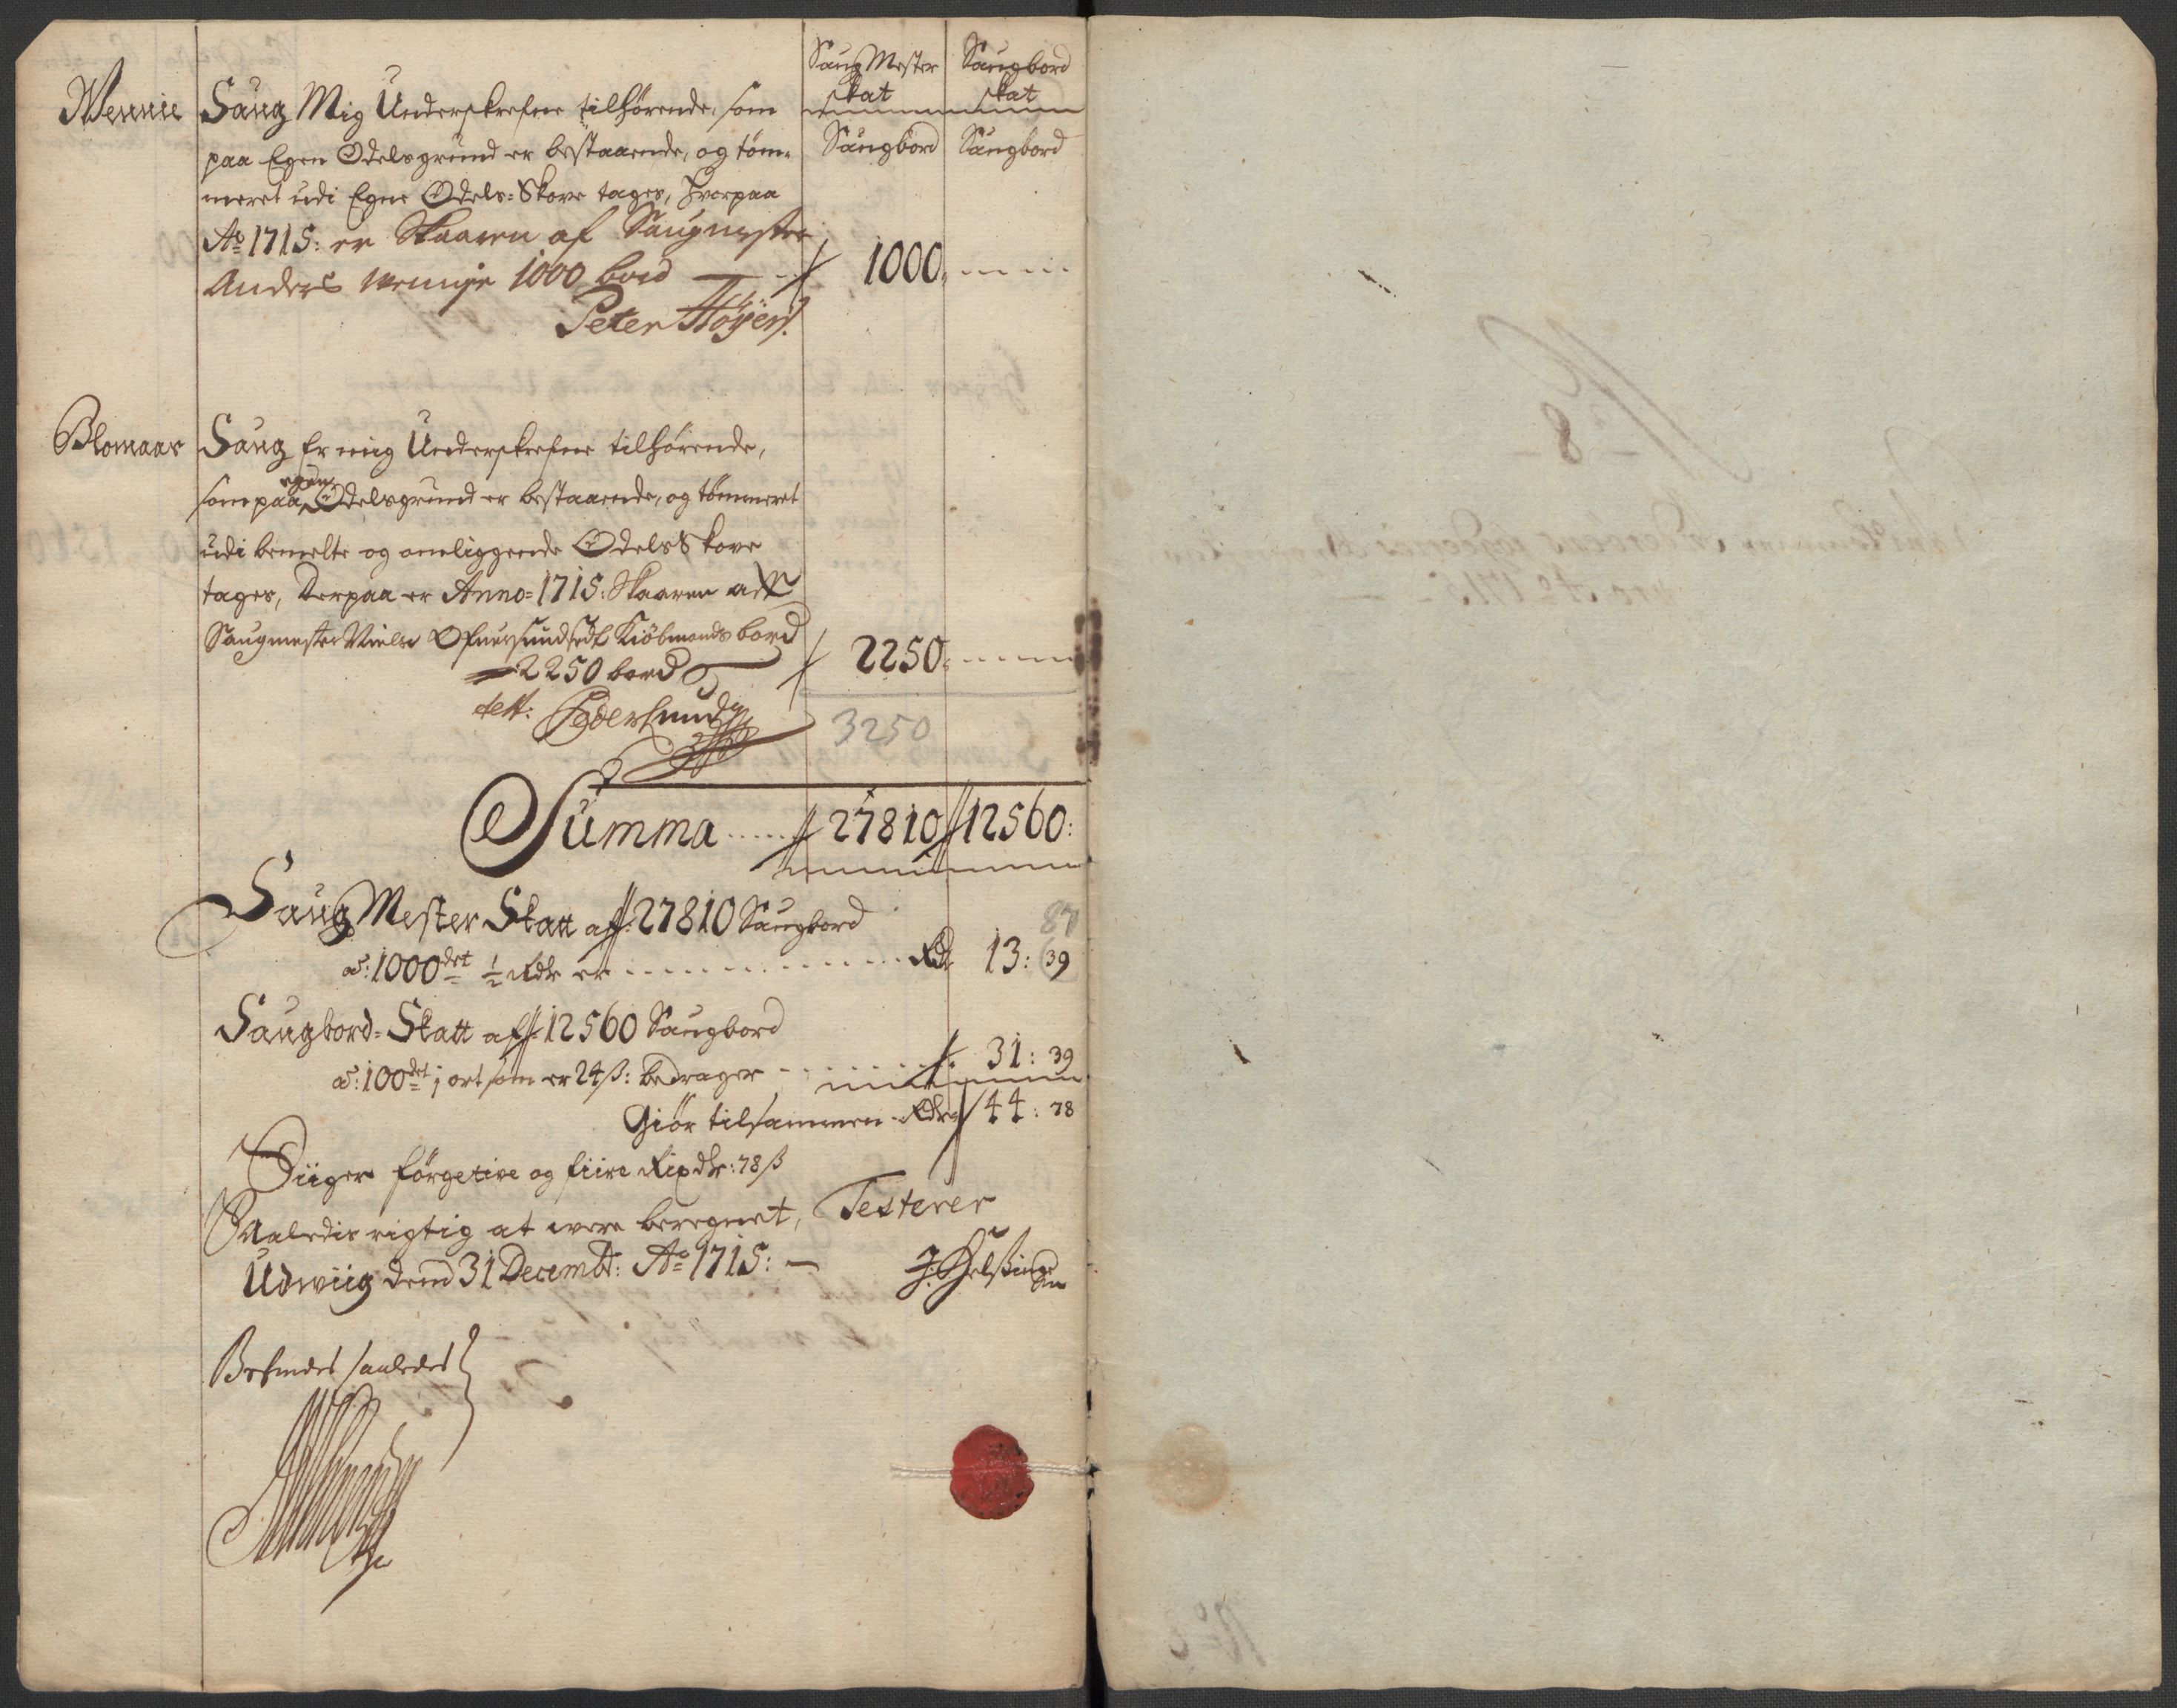 Saug Mester Saugbord
skat skat
Saugbord Saugbord
Wennie Saug Mig Underskrefne tilhørende, som
paa Egen Odelsgrund er bestaaende, og töm-
meret udi Egne Odels-Skove tages, hvorpaa
Ao 1715: er Skaaren af Saugmester
Anders wennie 1000 bord 1000
Peter Höÿer
Blomaar Saug Er mig Underskrefne tilhørende,
som paa egen Odelsgrund er bestaaende, og tömmeret
udi bemelte og omliggende Odels Skove
tages, Derpaa er Anno 1715: Skaaren aff
Saugmester Niels Kiöbmands bord
2250 bord 2250
3250
Summa 27810 12560:
Saug Mester Skatt aff 27810 Saugbord 87
a: 1000det ½ Rdr er Rdr 13: 39
Saugbord-Skatt aff 12560 Saugbord
a: 100det j ort som er 24 ß: bedrager 31: 39
Giör tilsammen Rdr 44: 78
Siiger förgetive og fiire Rixdr: 78 ß
Saaledis rigtig at were beregnet, Testerer
Udwiig dend 31 Decembr: Ao 1715:
Befindes saaledes
No 8
Ao 1715